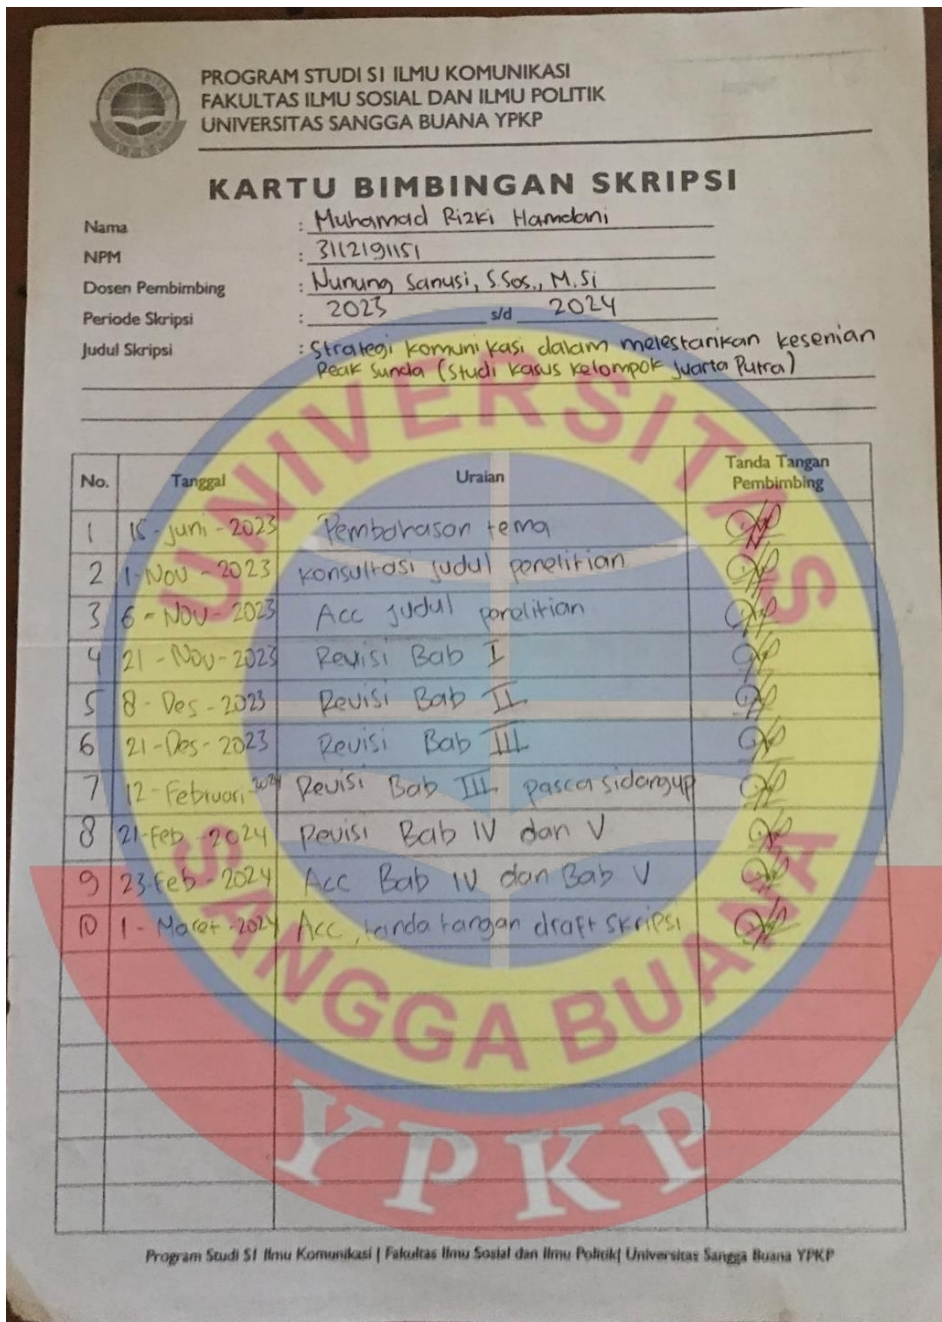 PROGRAM STUDI S1 ILMU KOMUNIKASI
FAKULTAS ILMU SOSIAL DAN ILMU POLITIK
UNIVERSITAS SANGGA BUANA YPKP
KARTU BIMBINGAN SKRIPSI
Nama : Muhamad Rizki Hamdani
NPM : 3112191151
Dosen Pembimbing : Nunung Sanusi, S.Sos., M.Si
Periode Skripsi : 2023 s/d 2024
Judul Skripsi : Strategi komunikasi dalam melestarikan kesenian
Reak Sunda (Studi Kasus Kelompok Juarta Putra)
No. Tanggal Uraian Tanda Tangan Pembimbing
1 15-Juni-2023 Pembahasan tema
2 1-Nov-2023 Konsultasi judul penelitian
3 6-Nov-2023 Acc judul penelitian
4 21-Nov-2023 Revisi Bab I
5 8-Des-2023 Revisi Bab II
6 21-Des-2023 Revisi Bab III
7 12-Februari-2024 Revisi Bab III pasca sidang up
8 21-Feb-2024 Revisi Bab IV dan V
9 23-Feb-2024 Acc Bab IV dan Bab V
10 1-Maret-2024 Acc, tanda tangan draft skripsi
UNIVERSITAS
SANGGA BUANA
YPKP
Program Studi S1 Ilmu Komunikasi | Fakultas Ilmu Sosial dan Ilmu Politik| Universitas Sangga Buana YPKP